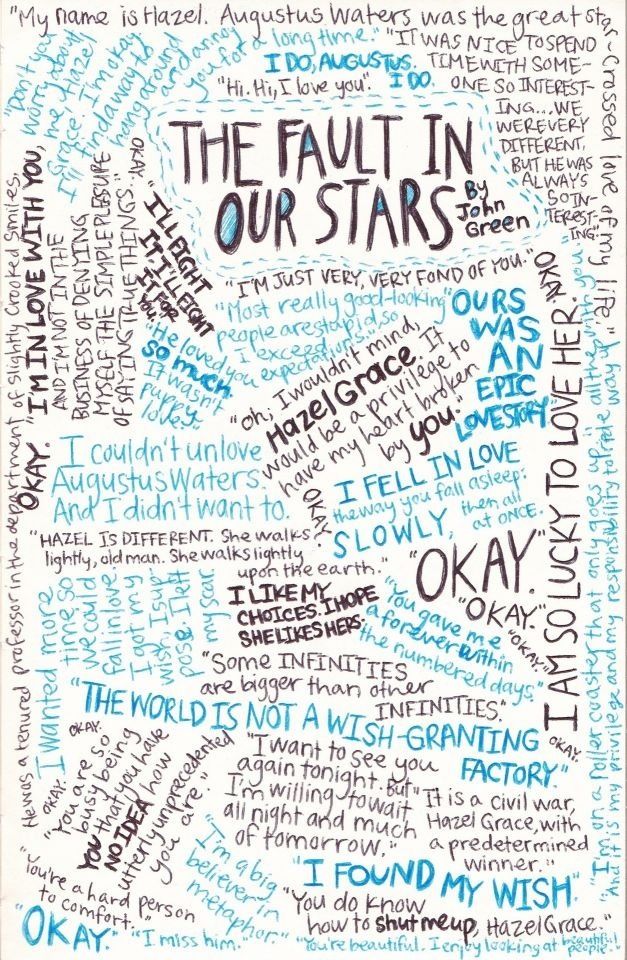 "My name is Hazel. Augustus Waters was the great star-crossed love of my life"
"Don't you
worry about
me, Hazel
Grace. I'm okay
I'll find a way to
hang around
and annoy
you for a long time."
I DO, AUGUSTUS.
I DO.
"Hi. Hi, I love you".
"IT WAS NICE TO SPEND
TIME WITH SOME-
ONE SO INTEREST-
ING...WE
WERE VERY
DIFFERENT,
BUT HE WAS
ALWAYS
SO IN-
TEREST-
ING."
THE FAULT IN
OUR STARS
By
John
Green
OKAY.
"I'M IN LOVE WITH YOU,
AND I'M NOT IN THE
BUSINESS OF DENYING
MYSELF THE SIMPLE PLEASURE
OF SAYING TRUE THINGS."
"I'LL FIGHT
IT. I'LL FIGHT
IT FOR
YOU."
"I'M JUST VERY, VERY FOND OF YOU."
OKAY.
"Most really good-looking
people are stupid, so
I exceed
expectations."
"OURS
WAS
AN
EPIC
LOVE STORY"
"He loved you
so much.
It wasn't
puppy
love."
"Oh, I wouldn't mind,
Hazel Grace. It
would be a privilege to
have my heart broken
by you."
OKAY.
I couldn't unlove
Augustus Waters.
And I didn't want to.
OKAY.
I FELL IN LOVE
the way you fall asleep:
SLOWLY, then all
at ONCE.
"HAZEL IS DIFFERENT. She walks
lightly, old man. She walks lightly
upon the earth."
"OKAY."
"OKAY."
"OKAY."
I AM SO LUCKY TO LOVE HER.
OKAY.
"I'm on a roller coaster that only goes up
And it is my privilege and my responsibility to ride all the way up with you."
He was a tenured professor in the department of Slightly Crooked Smiles.
I wanted more
time so
we could
fall in love.
I got my
wish, I sup-
pose. I left
my scar
I LIKE MY
CHOICES. I HOPE
SHE LIKES HERS.
"You gave me
a forever within
the numbered days."
"Some INFINITIES
are bigger than other
INFINITIES."
"THE WORLD IS NOT A WISH-GRANTING
FACTORY."
OKAY.
OKAY.
"You are so
busy being
YOU that you have
NO IDEA how
utterly unprecedented
you are."
"I want to see you
again tonight. But
I'm willing to wait
all night and much
of tomorrow."
"It is a civil war,
Hazel Grace, with
a predetermined
winner."
"You're a hard person
to comfort."
"I'm a big
believer in
metaphor."
"I FOUND MY WISH."
"You do know
how to shut me up, Hazel Grace."
"OKAY."
"I miss him."
"You're beautiful. I enjoy looking at beautiful
people."